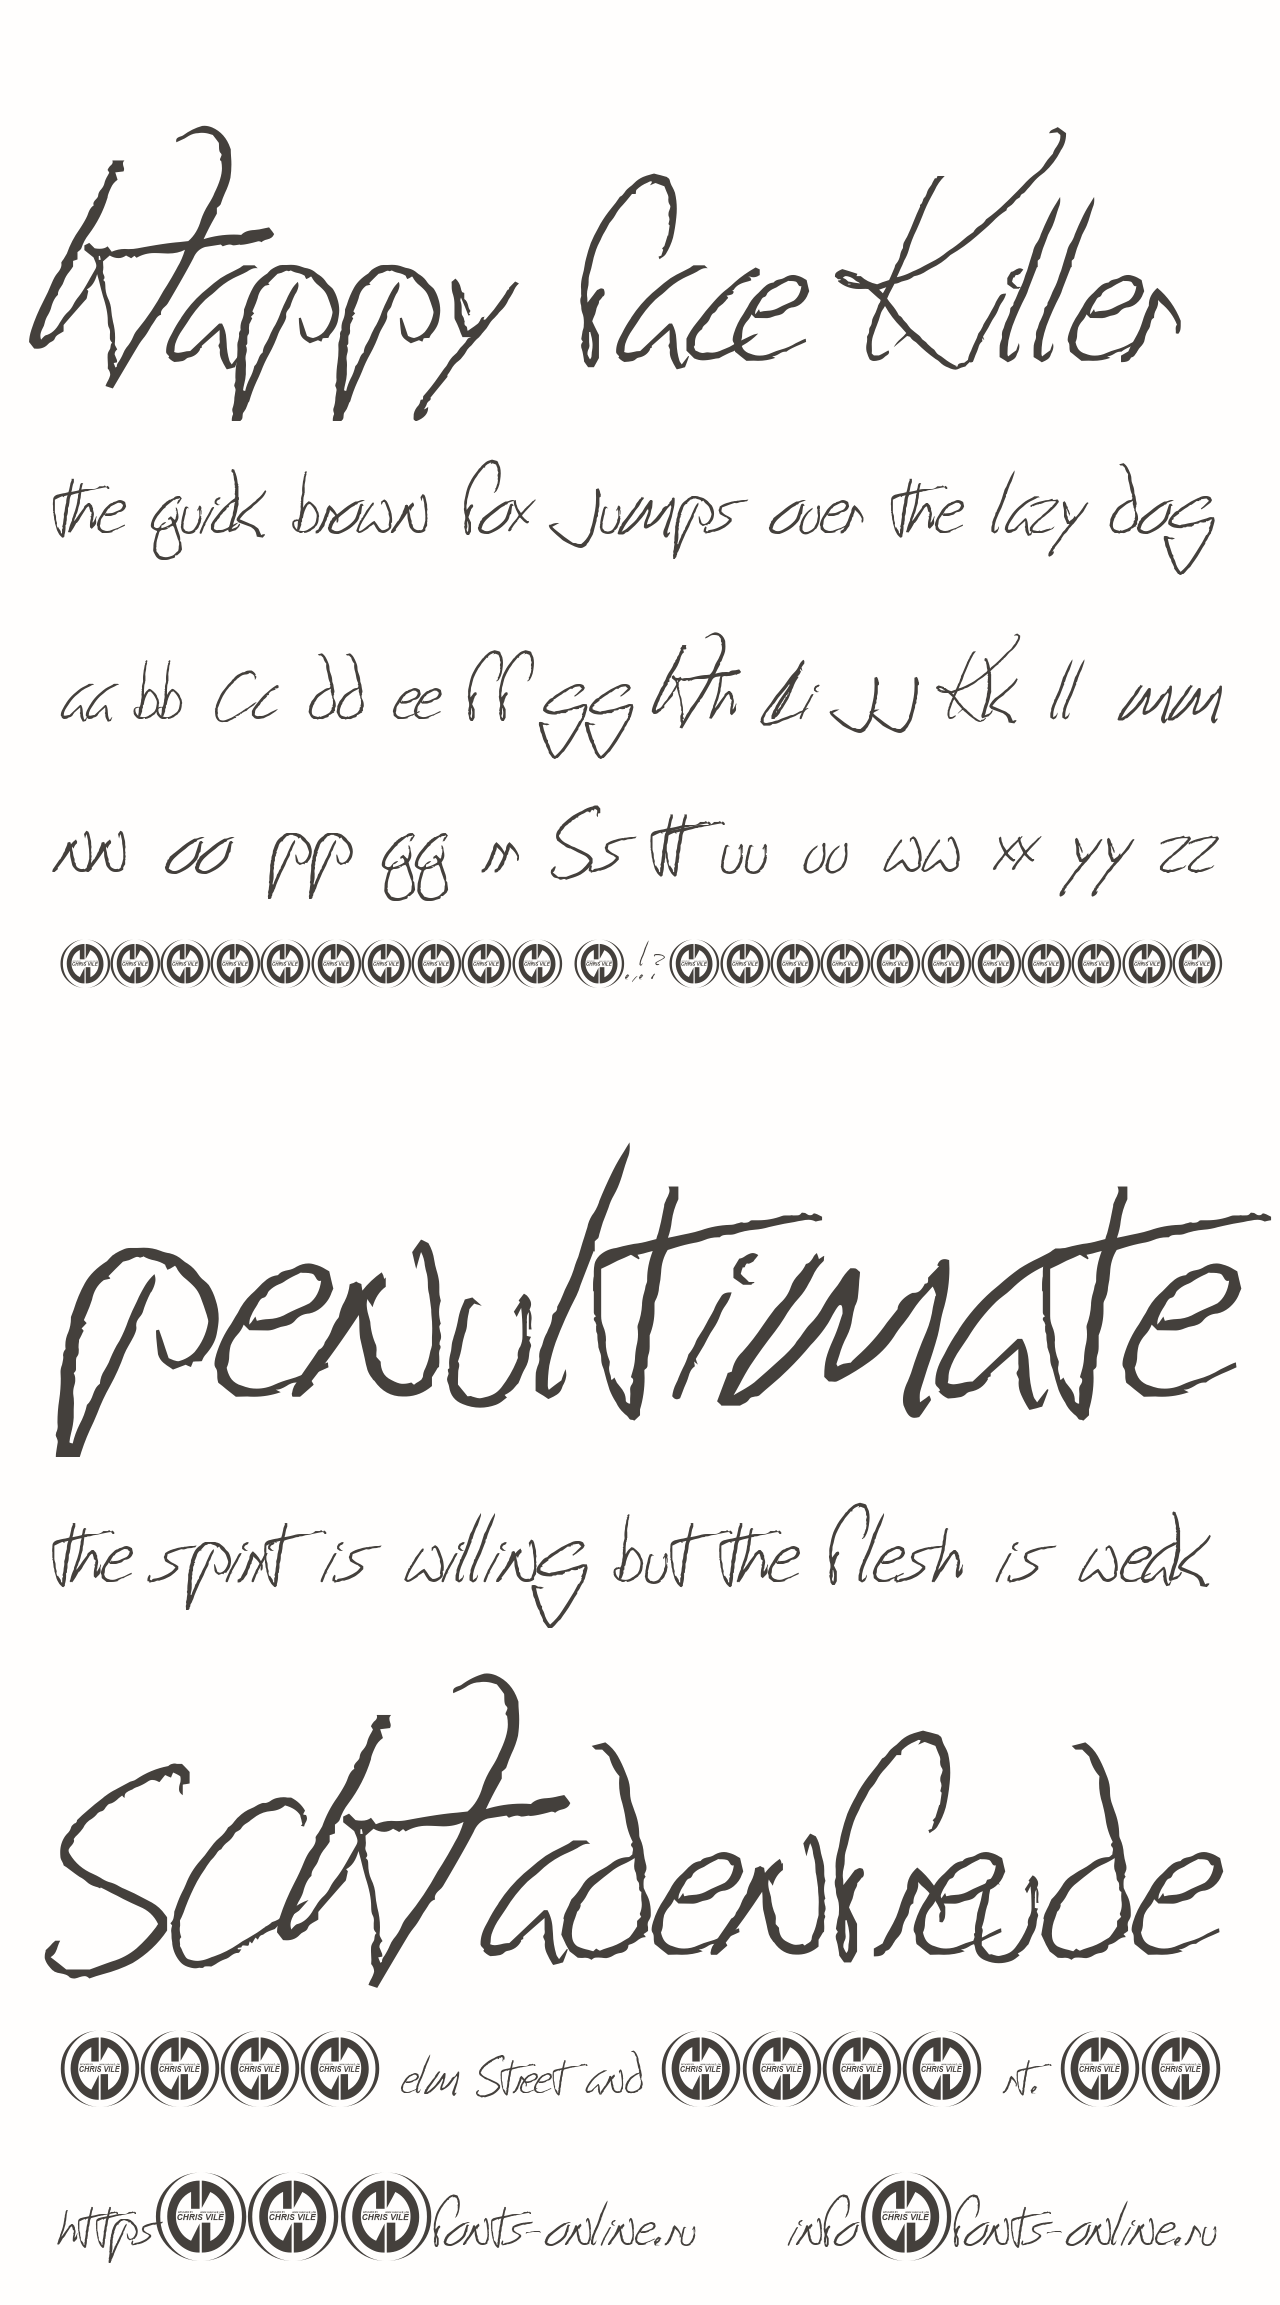 Happy face Killer
the quick brown fox jumps over the lazy dog
aa bb Cc dd ee ff gg Hh Ii JJ Kk ll mm
nn oo pp qq rr Ss tt uu vv ww xx yy zz
CHRIS VILE CHRIS VILE CHRIS VILE CHRIS VILE CHRIS VILE CHRIS VILE CHRIS VILE CHRIS VILE CHRIS VILE CHRIS VILE CHRIS VILE .,..!:;? CHRIS VILE CHRIS VILE CHRIS VILE CHRIS VILE CHRIS VILE CHRIS VILE CHRIS VILE CHRIS VILE CHRIS VILE CHRIS VILE CHRIS VILE
penultimate
the spirit is willing but the flesh is weak
ScHadenfreude
CHRIS VILE CHRIS VILE CHRIS VILE CHRIS VILE elm Street and CHRIS VILE CHRIS VILE CHRIS VILE CHRIS VILE rt. CHRIS VILE CHRIS VILE
https CHRIS VILE CHRIS VILE CHRIS VILE fonts-online.ru info CHRIS VILE fonts-online.ru